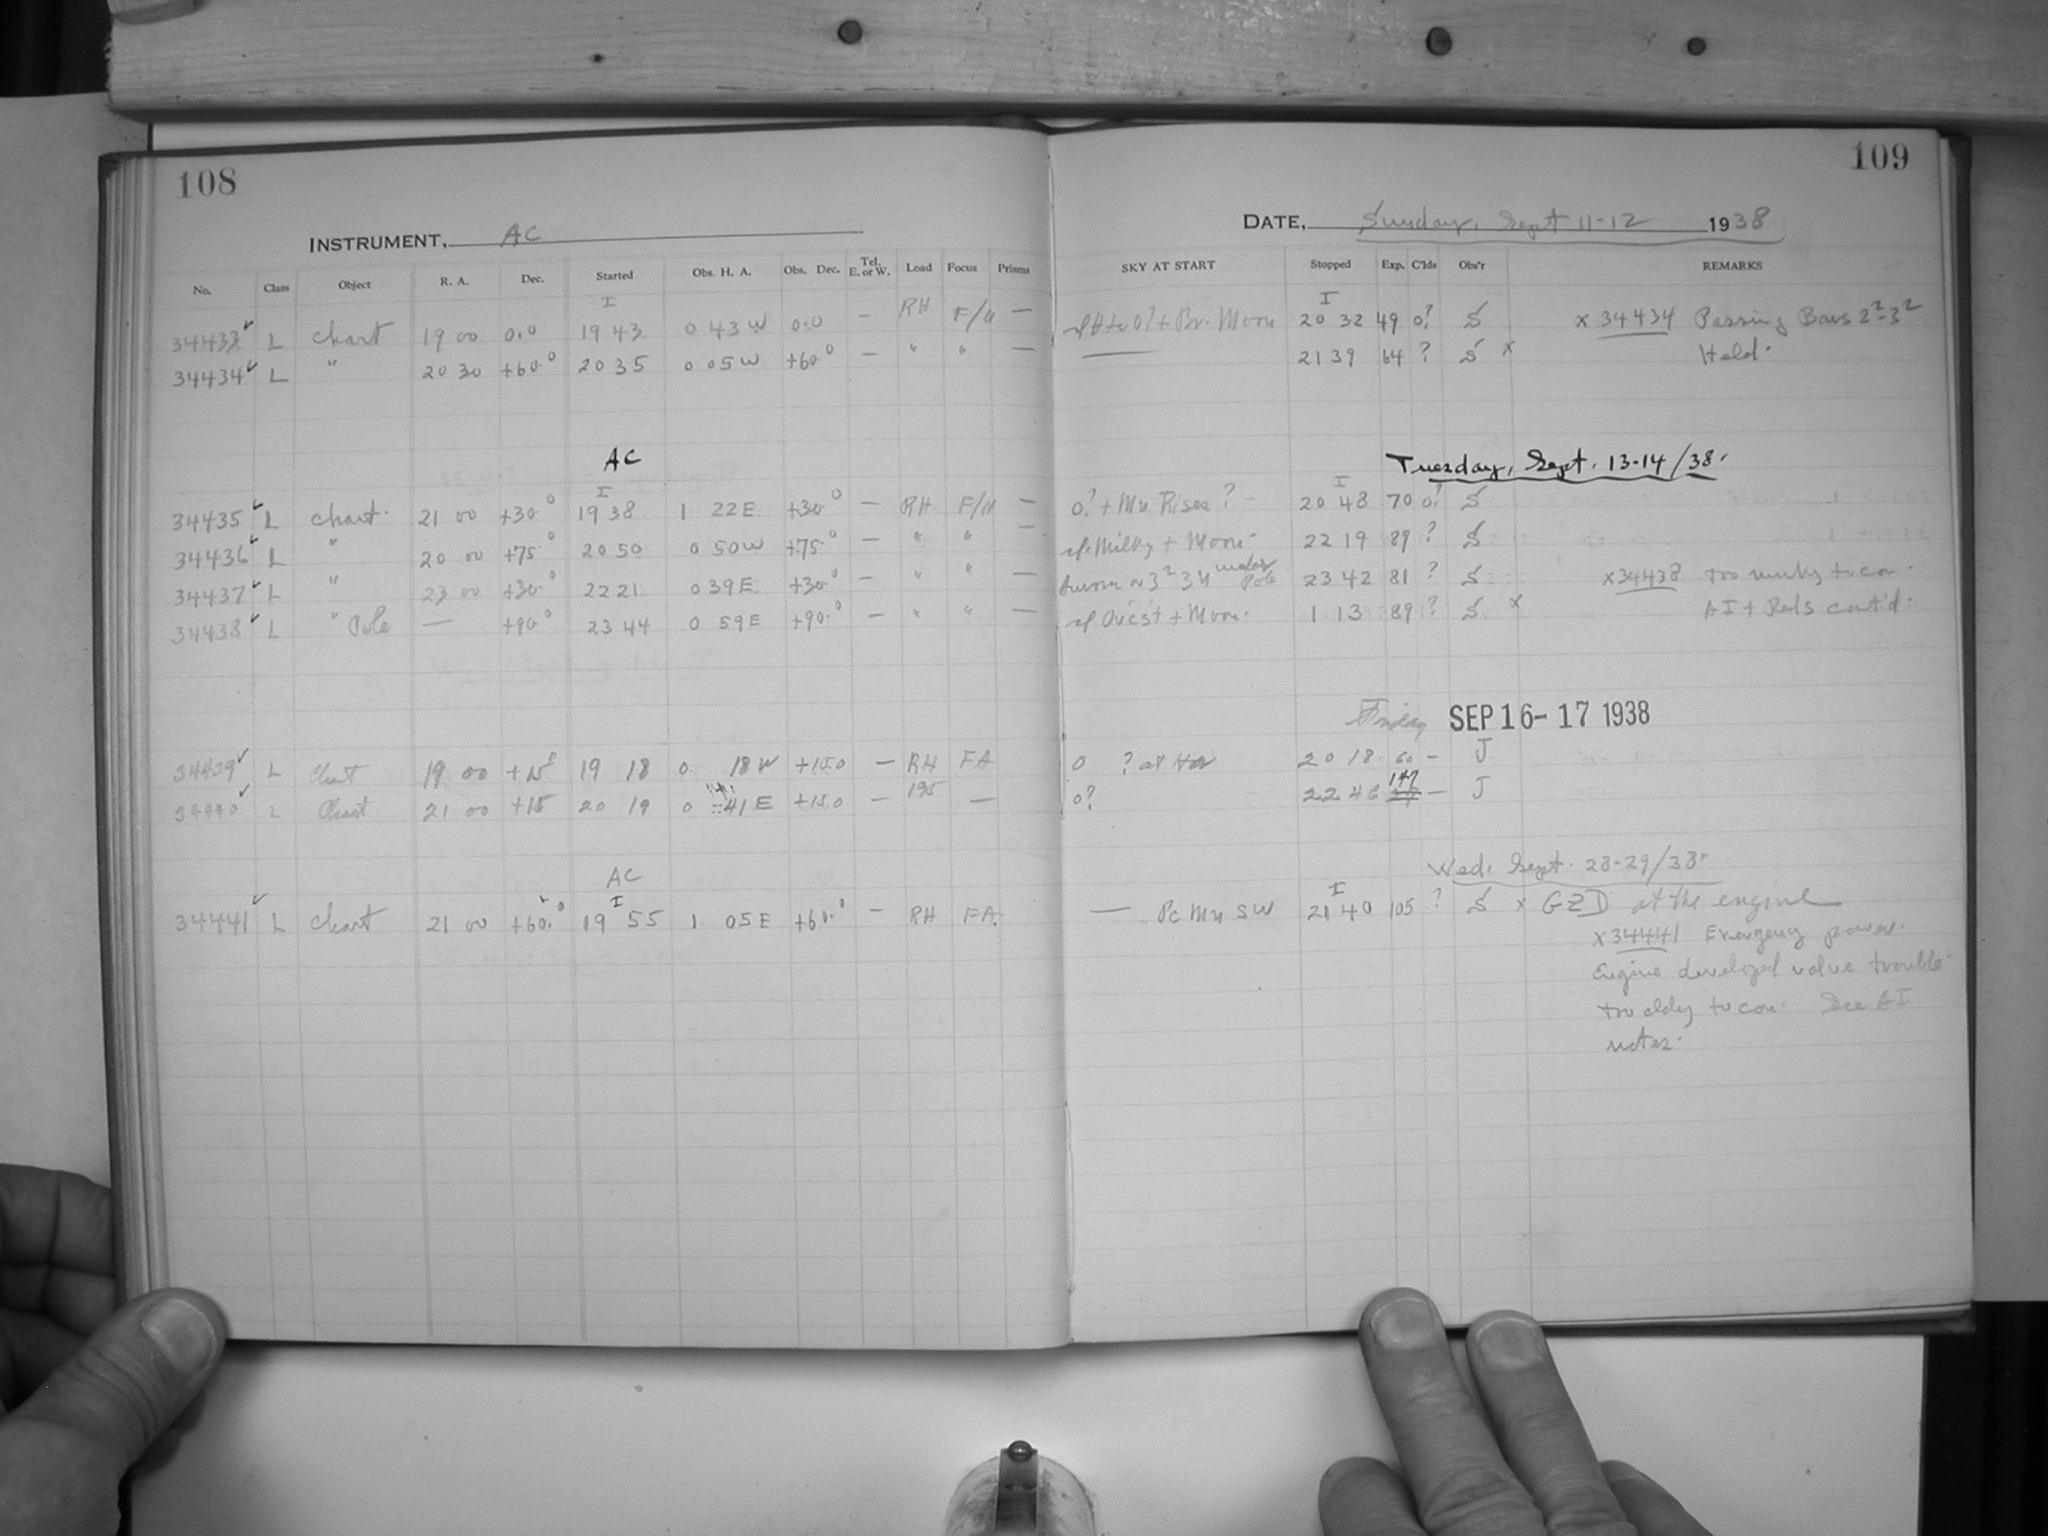 108
109
INSTRUMENT, AC
DATE, Sunday, Sept 11-12 1938
No. Class Object R. A. Dec. Started Obs. H. A. Obs. Dec. Tel. E. or W. Load Focus Prisms SKY AT START Stopped Exp. C'lds Obs'r REMARKS
I I
34433 ✓ L Chart 19 00 0.0 19 43 0 43 W 0.0 — RH F/A — + Br. Moon 20 32 49 0? S x 34434 Passing Bars 2²-3²
34434 ✓ L " 20 30 +60.° 20 35 0 05 W +60° — " " — 21 39 64 ? S x Held.
AC Tuesday, Sept. 13-14/38.
I I
34435 ✓ L Chart. 21 00 +30.° 19 38 1 22 E +30.° — RH F/A — 0? + Mn Rises? 20 48 70 0? S
34436 ✓ L " 20 00 +75.° 20 50 0 50 W +75.° — " " — Milky + Moon. 22 19 89 ? S
34437 ✓ L " 23 00 +30.° 22 21 0 39 E +30.° — " " — under Pole 23 42 81 ? S x34438 too to con.
34438 ✓ L " Pole — +90.° 23 44 0 59 E +90.° — " " — + Moon. 1 13 89 ? S x AI + Reds cont'd.
Friday SEP 16-17 1938
34439 ✓ L Chart 19 00 +15° 19 18 0. 18 W +15.0 — RH FA 0 ? at 20 18 60 — J
34440 ✓ L Chart 21 00 +15 20 19 0 41 E +15.0 — 195 — 0? 22 46 147 — J
AC Wed. Sept. 28-29/38.
I I
34441 ✓ L Chart 21 00 +60.° 19 55 1 05 E +60.° — RH FA. — Pc Mn SW 21 40 105 ? S x GZD at the engine
x34441 Emergency power.
Engine developed valve trouble.
too to con. See AI
notes.